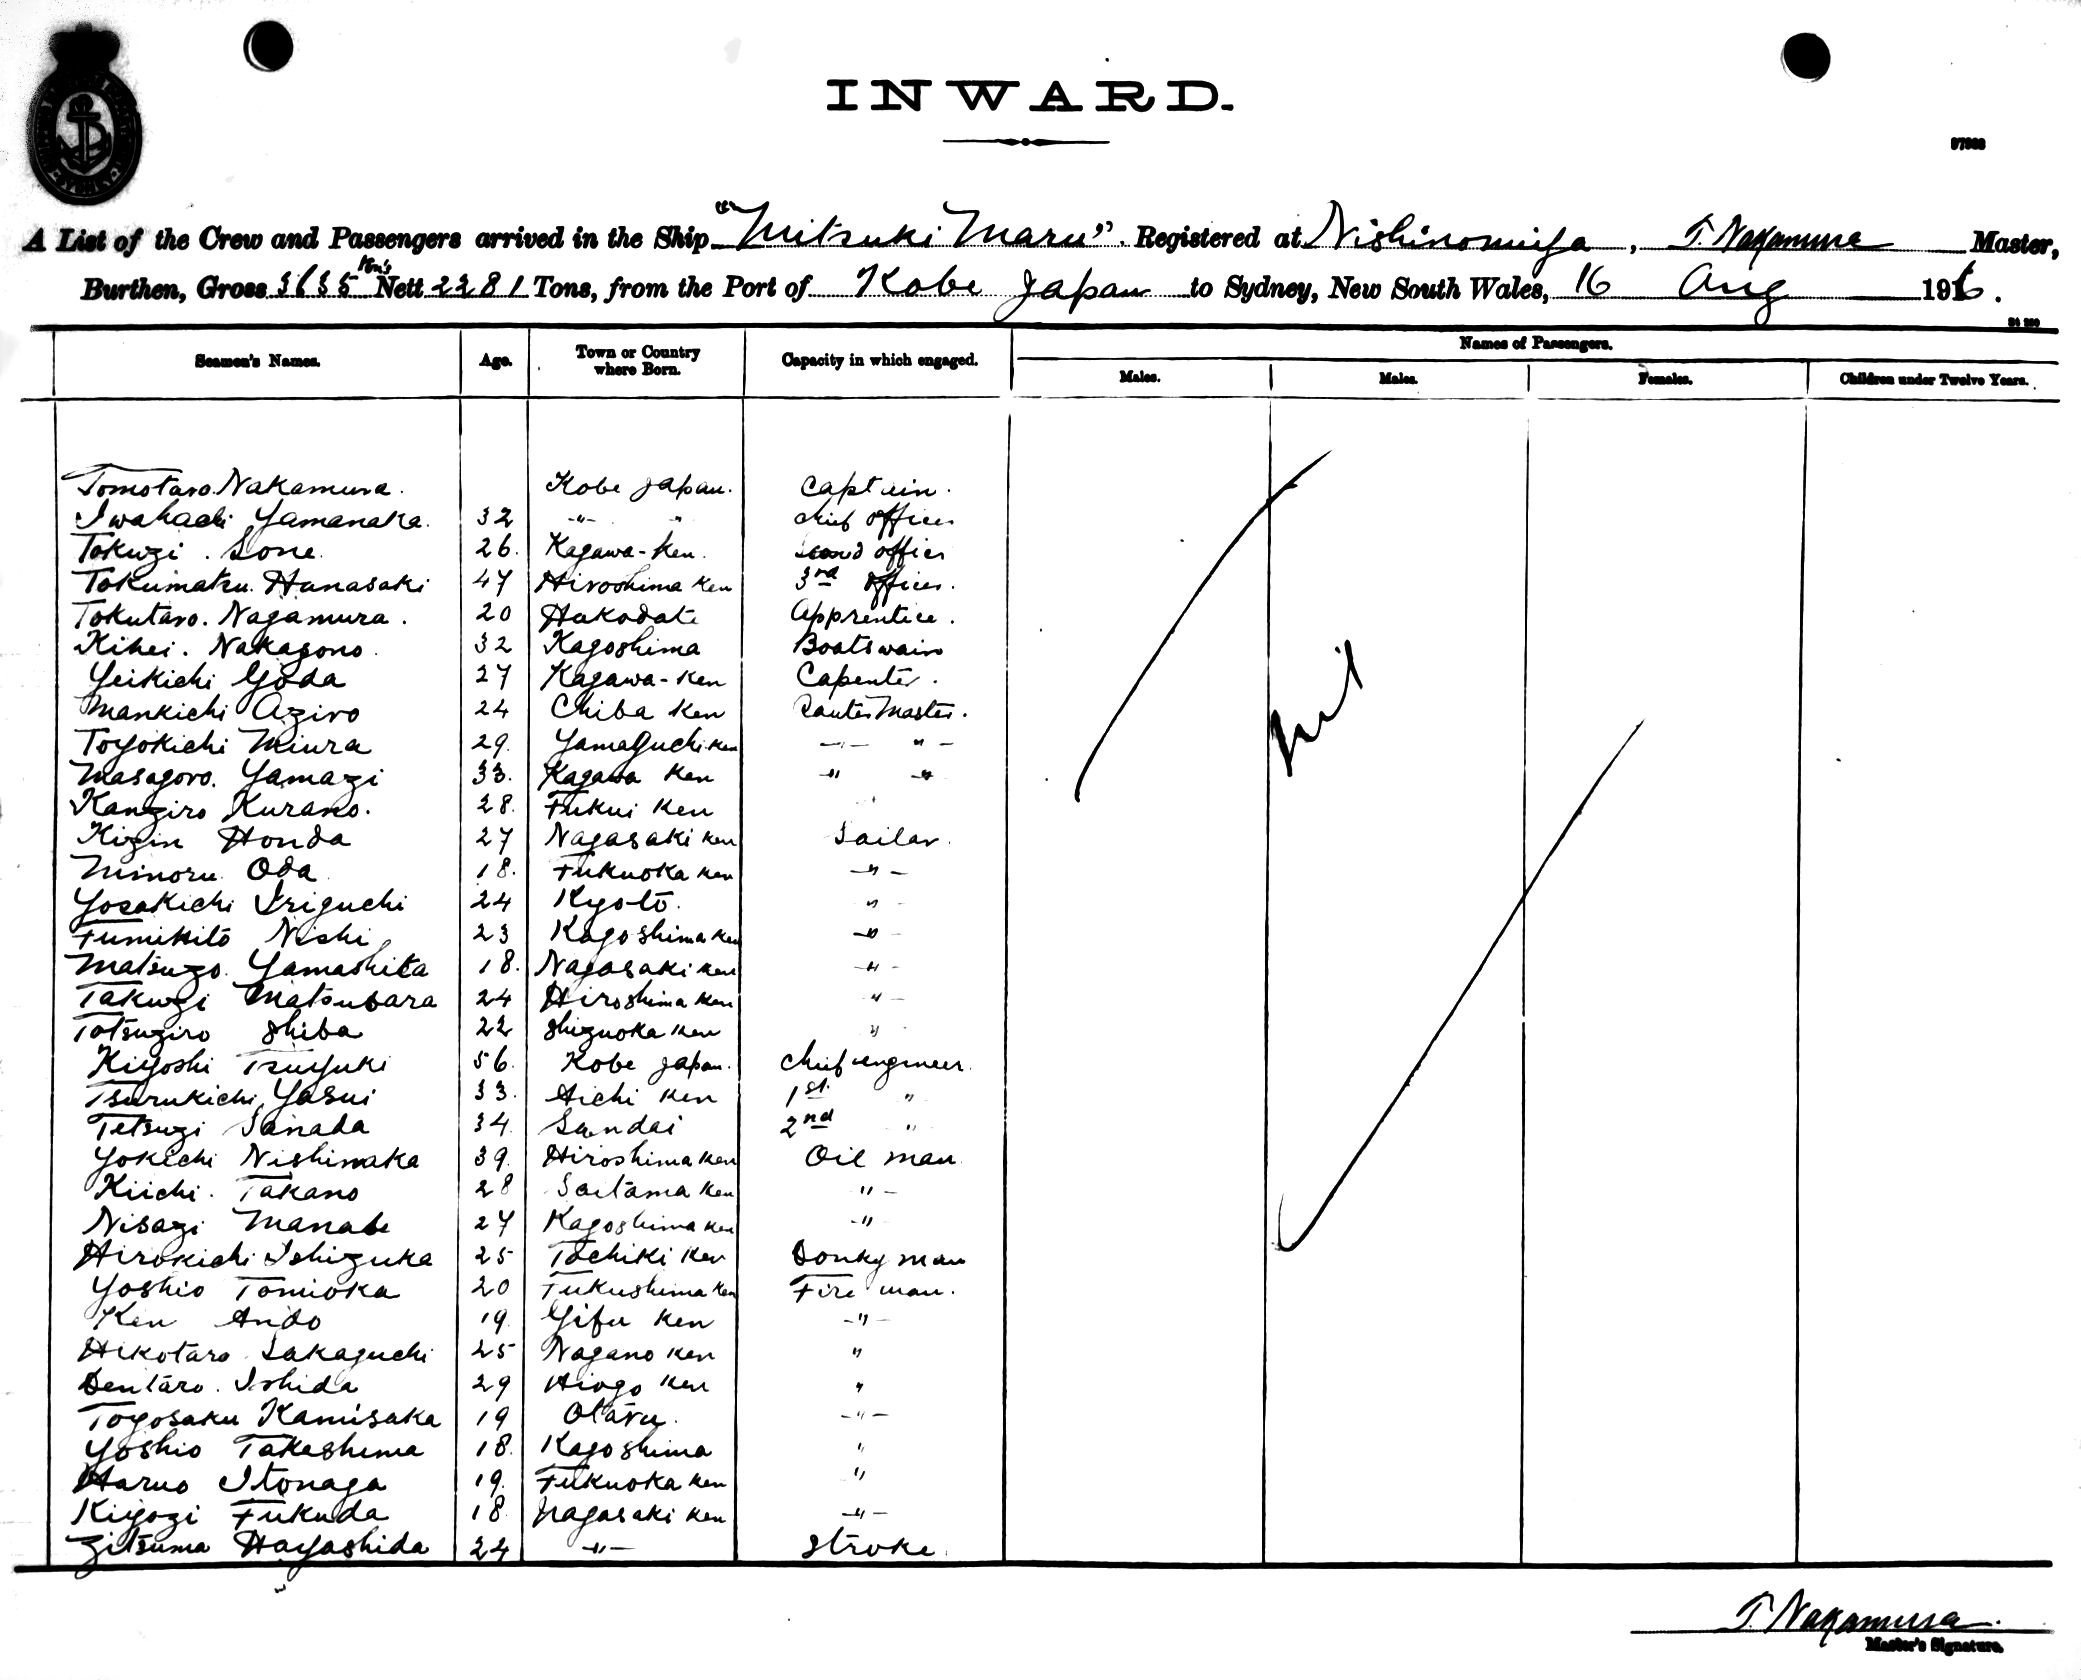 INWARD.
A List of the Crew and Passengers arrived in the Ship "Mitsuki Maru". Registered at Nishinomiya, T. Nakamura Master,
Burthen, Gross 3635 Nett 2281 Tons, from the Port of Kobe Japan to Sydney, New South Wales, 16 Aug 1916.
Seamen's Names. Age. Town or Country where Born. Capacity in which engaged. Names of Passengers.
Males. Males. Females. Children under Twelve Years.
Tomotaro Nakamura. Kobe Japan. Captain.
Iwahachi Yamanaka. 32 -"- " Chief Officer
Tokuzi. Sone. 26. Kagawa-Ken. Second officer
Tokumatsu Hanasaki 47 Hiroshima Ken 3rd Officer.
Tokutaro. Nagamura. 20 Hakodate Apprentice.
Kihei. Nakasono. 32 Kagoshima Boatswain
Yeikichi Goda 27 Kagawa-Ken Capenter.
Mankichi Aziro 24 Chiba Ken Master.
Toyokichi Miura 29. Yamaguchi Ken -"- "-
Masagoro. Yamazi 33. Kagawa Ken " "
Kanziro Kurano. 28. Fukui Ken
Kizin Honda 27 Nagasaki Ken Sailor.
Minoru Oda 18. Fukuoka Ken -"-
Yosakichi Iriguchi 24 Kyoto. "
Fumihito Nishi 23 Kagoshima Ken -"-
Matsuzo. Yamashita 18. Nagasaki Ken -"-
Takuzi Matsubara 24 Hiroshima Ken "-
Tatsuziro Shiba 22 Shizuoka Ken "
Kiyoshi Tsuyuki 56. Kobe Japan. Chief engineer.
Tsurukichi Yasui 33. Aichi Ken 1st. "
Tetsuzi Sanada 34. Sendai 2nd "
Yokichi Nishinaka 39. Hiroshima Ken Oil man.
Kiichi. Takano 28 Saitama Ken "-
Nisazi Manabe 27 Kagoshima Ken -"
Hirokichi Ishizuka 25 Tochiki Ken Donky man
Yoshio Tomioka 20 Fukushima Ken Fire man.
Ken Ando 19. Gifu Ken -"-
Hikotaro Sakaguchi 25 Nagano Ken "
Sentaro. Ishida 29 Hiogo Ken "
Toyosaku Kamisaka 19 Otaru. -"-
Yoshio Takashima 18. Kagoshima "
Haruo Itonaga 19. Fukuoka Ken "
Kiyozi Fukuda 18. Nagasaki Ken -"-
Zitsuma Hayashida 24 -"- Stroke.
nil
T. Nakamura.
Master's Signature.